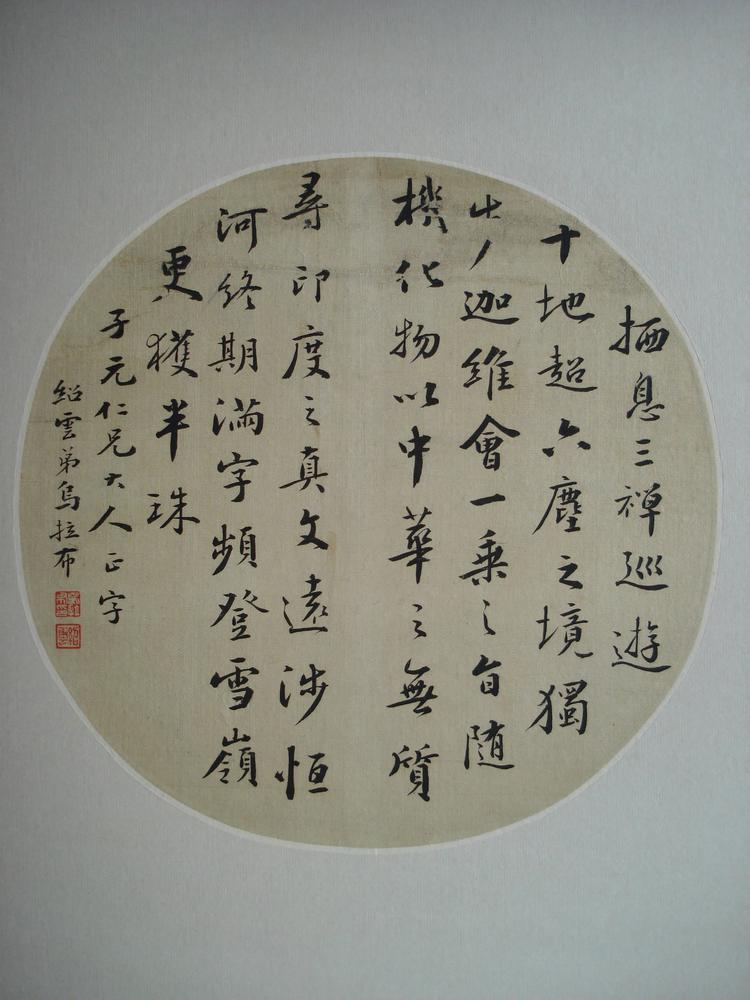 栖息三禅巡遊
十地超六塵之境獨
步迦維會一乘之旨随
機化物以中華之無質
尋印度之真文遠涉恒
河終期滿字頻登雪嶺
更獲半珠
子元仁兄大人正字
紹雲弟烏拉布